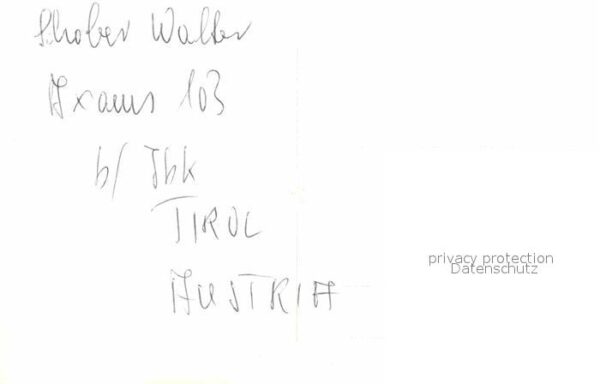 Schober Walter
Axams 103
b/ Ibk
TIROL
AUSTRIA
privacy protection
Datenschutz